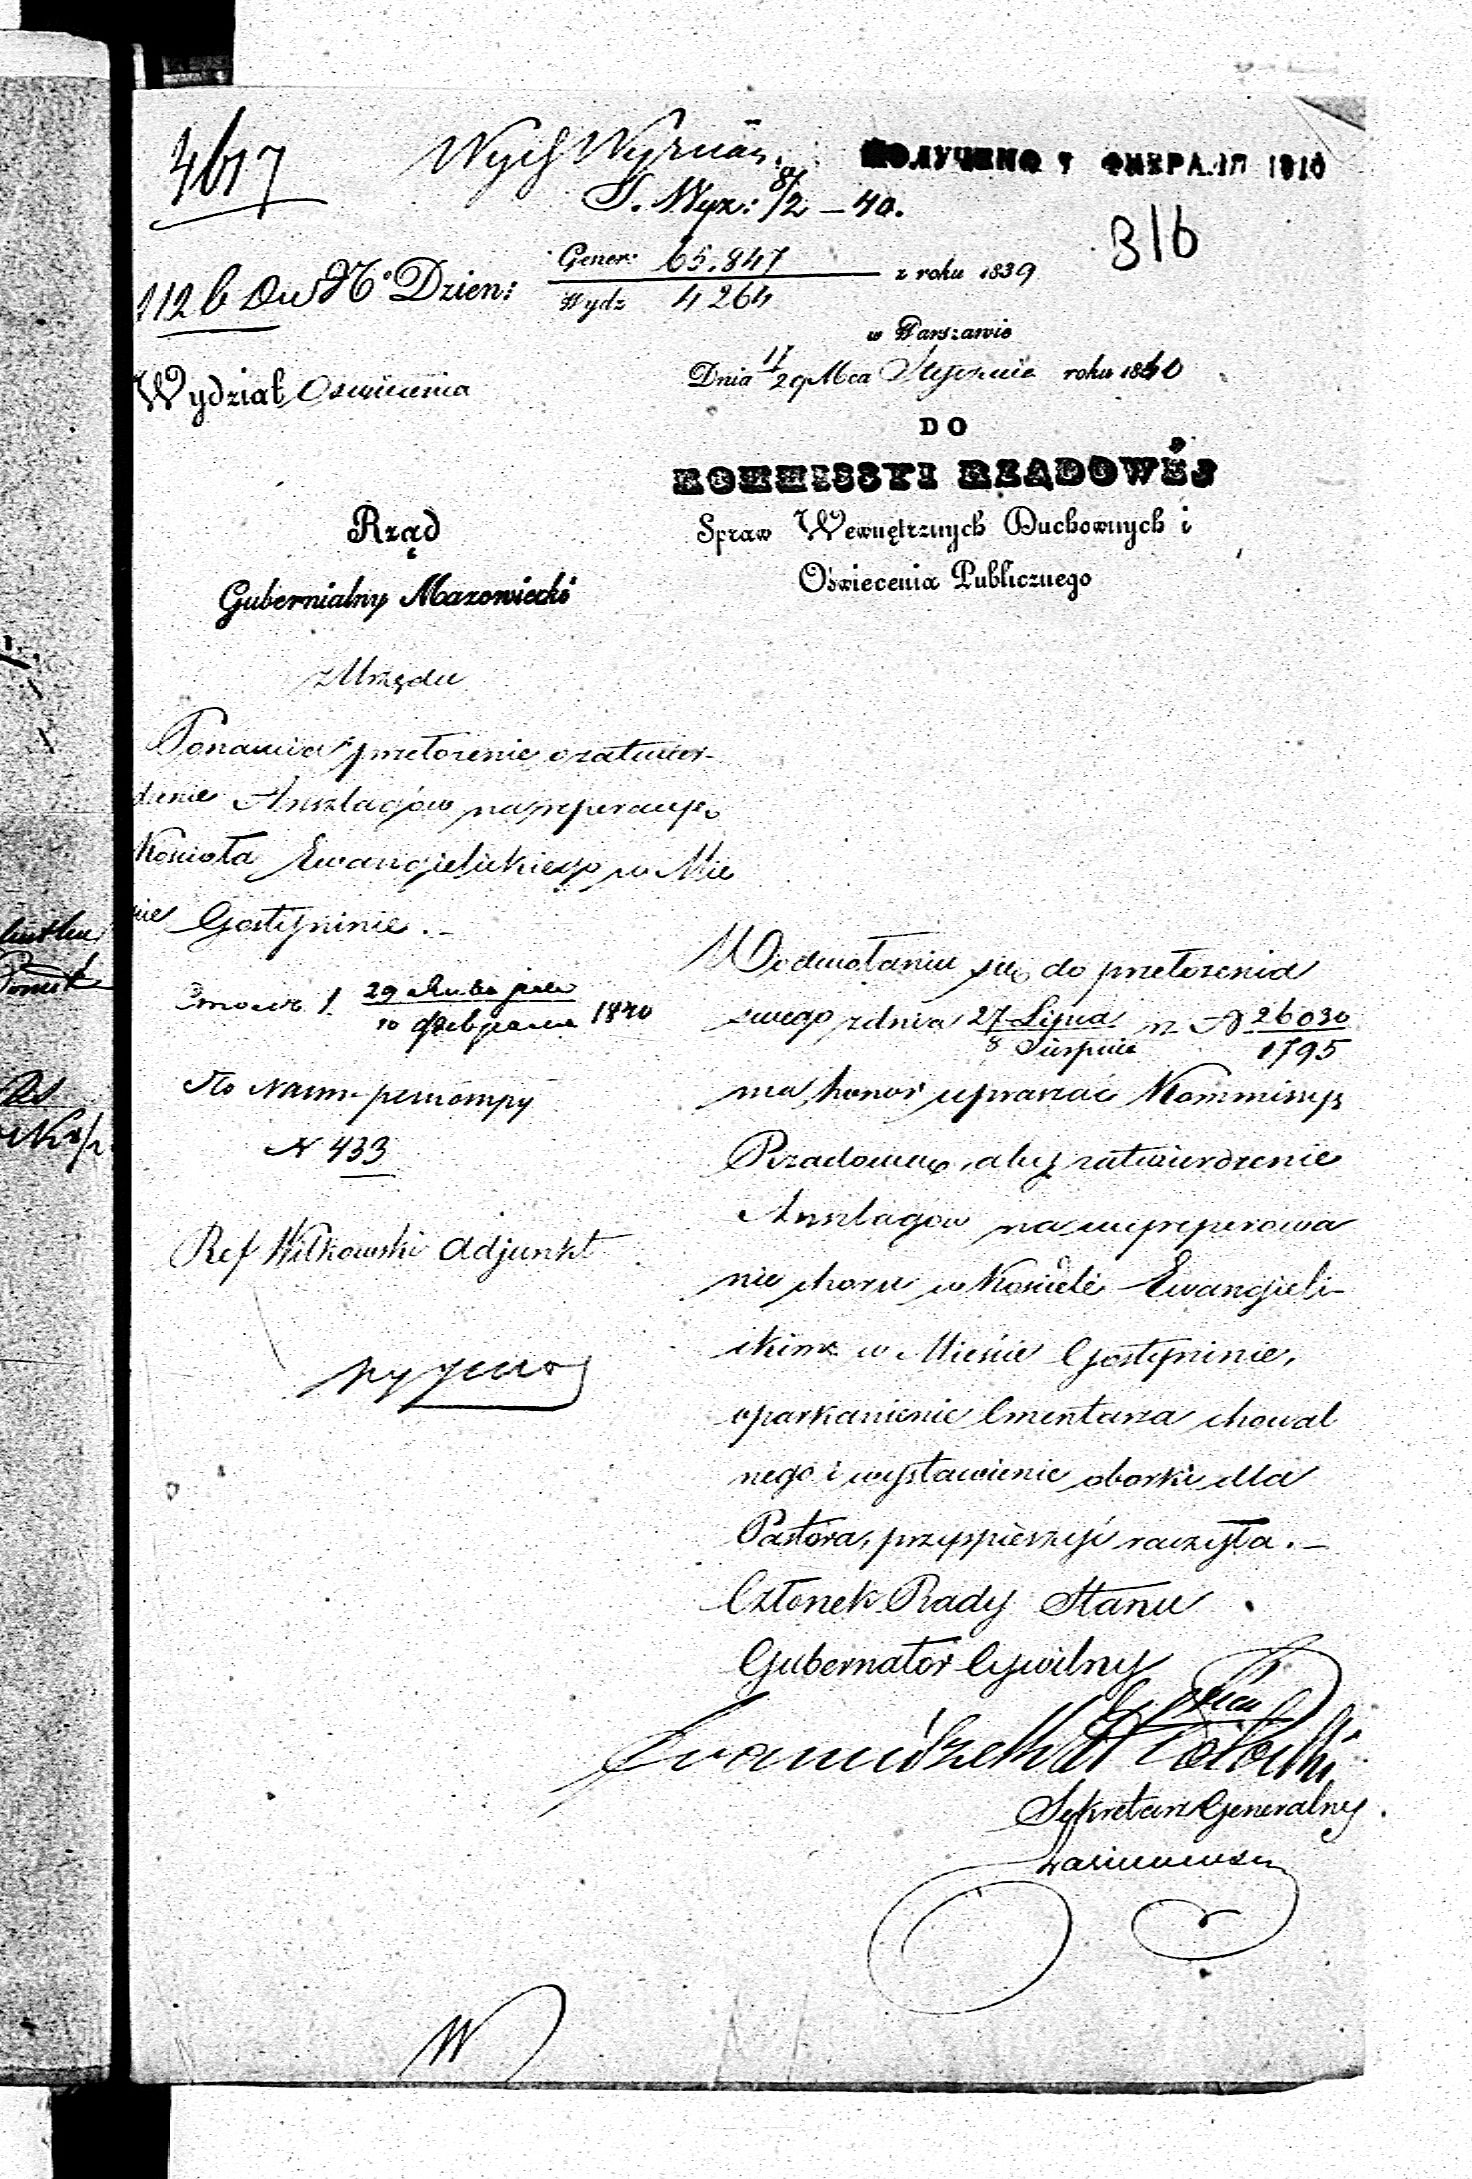 4617
Wych Wyznań.
ПОЛУЧЕНО 7 ФЕВРАЛЯ 1840
T. Wyz: 8/2 – 40.
316
112 b Du
No Dzien: Gener: 65.847 z roku 1839
Wydz 4264
w Warszawie
Dnia 17/29 Mca Stycznia roku 1840
Wydział Oświecenia
DO
KOMMISSYI RZĄDOWÉJ
Spraw Wewnętrznych Duchownych i
Oświecenia Publicznego
Rząd
Gubernialny Mazowiecki
z Urzędu
Ponawia przełożenie o zatwier-
dzenie Anszlagów na reperacyę
Kościoła Ewangielickiego w Mie
ście Gostyninie. –
29 Января
10 Февраля 1840
N 433
Ref Witkowski Adjunkt
W odwołaniu się do przełożenia
swego z dnia 27 Lipca / 8 Sierpnia nr N 26030 / 1795
ma honor upraszać Kommissyę
Rządową, aby zatwierdzenie
Anszlagów na wyreperowa
nie choru w Kościele Ewangieli-
ckim w Mieście Gostyninie,
oparkanienie Cmentarza chowal
nego i wystawienie oborki dla
Pastora, przyspieszyć raczyła. –
Członek Rady Stanu
Gubernator Cywilny
Sekretarz Generalny